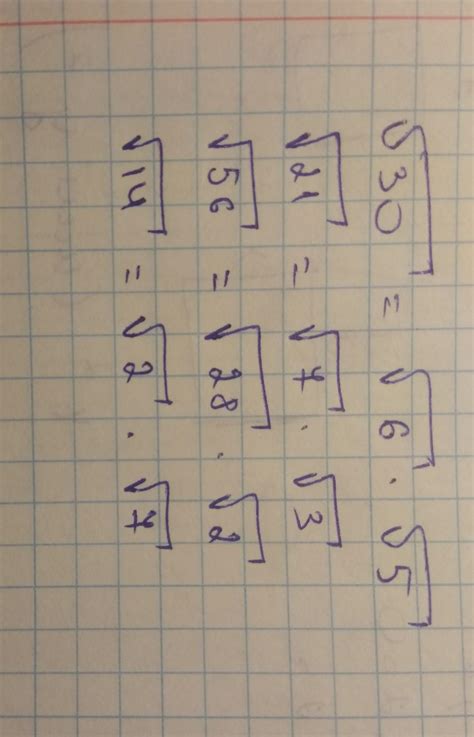 √30 = √6 · √5
√21 = √7 · √3
√56 = √28 · √2
√14 = √2 · √7